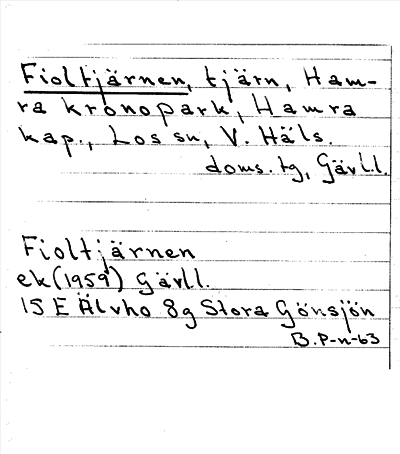 Fioltjärnen, tjärn, Ham-
ra kronopark, Hamra
kap., Los sn, V. Häls.
doms. tg, Gävl.l.
Fioltjärnen
ek (1959) Gävll.
15 E Älvho 8g Stora Gönsjön
B.P-n-63